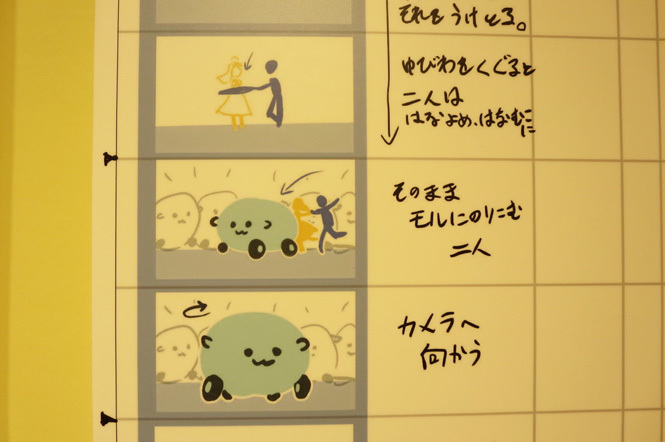 それをうけとる。
ゆびわをくぐると
二人は
はなよめ、はなむこに
そのまま
モルにのりこむ
二人
カメラへ
向かう